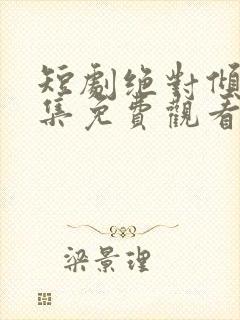 短劇絶對傾
集免費觀看
梁景理